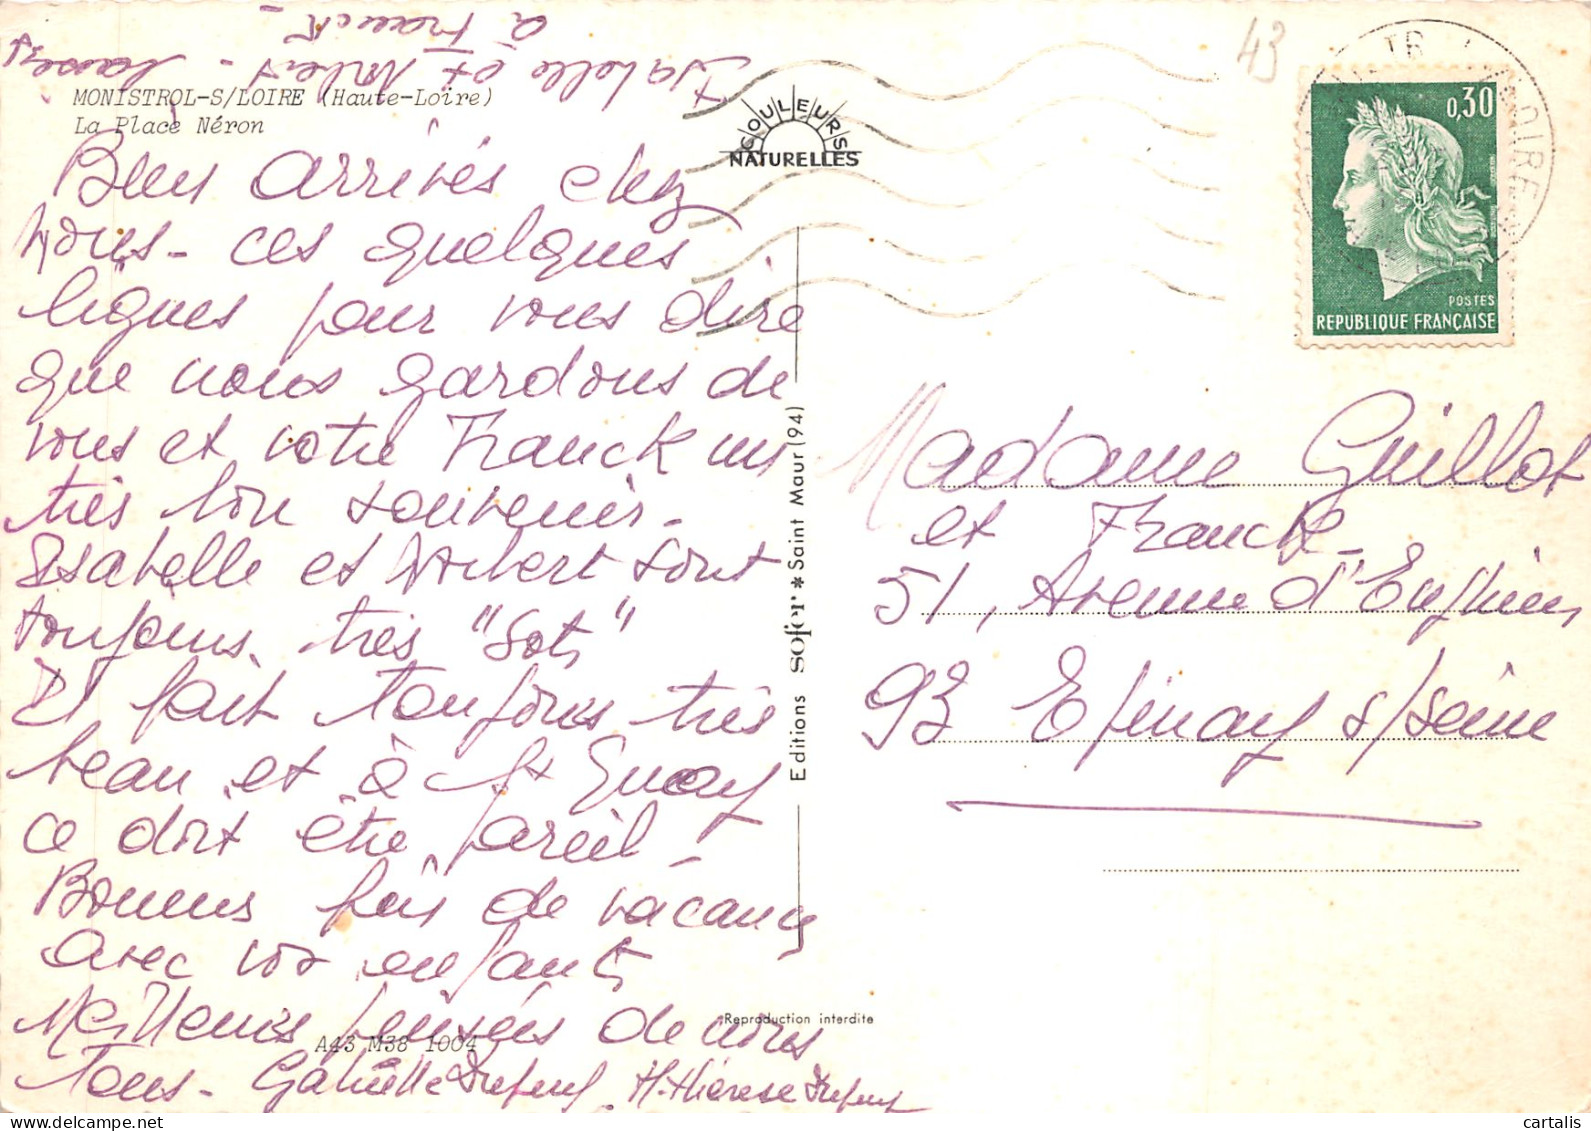 à Franck -
Isabelle et Norbert -
MONISTROL-S/LOIRE (Haute-Loire)
La Place Néron
Bien arrivés chez
nous - ces quelques
lignes pour vous dire
que nous gardons de
vous et votre Franck un
très bon souvenir -
Isabelle et Norbert sont
toujours très "Sots"
Il fait toujours très
beau et à St Quay
ce doit être pareil -
Bonnes fins de vacances
avec vos enfants
Meilleures pensées de nous
Tous - Gabrielle
M. Thérèse
A43 M38 1004
COULEURS
NATURELLES
Editions sofer * Saint Maur (94)
Reproduction interdite
43
0,30
POSTES
REPUBLIQUE FRANÇAISE
Madame Guillot
et Franck -
51, Avenue d'Enghien
93 Epinay s/seine
cartalis
delcampe.net